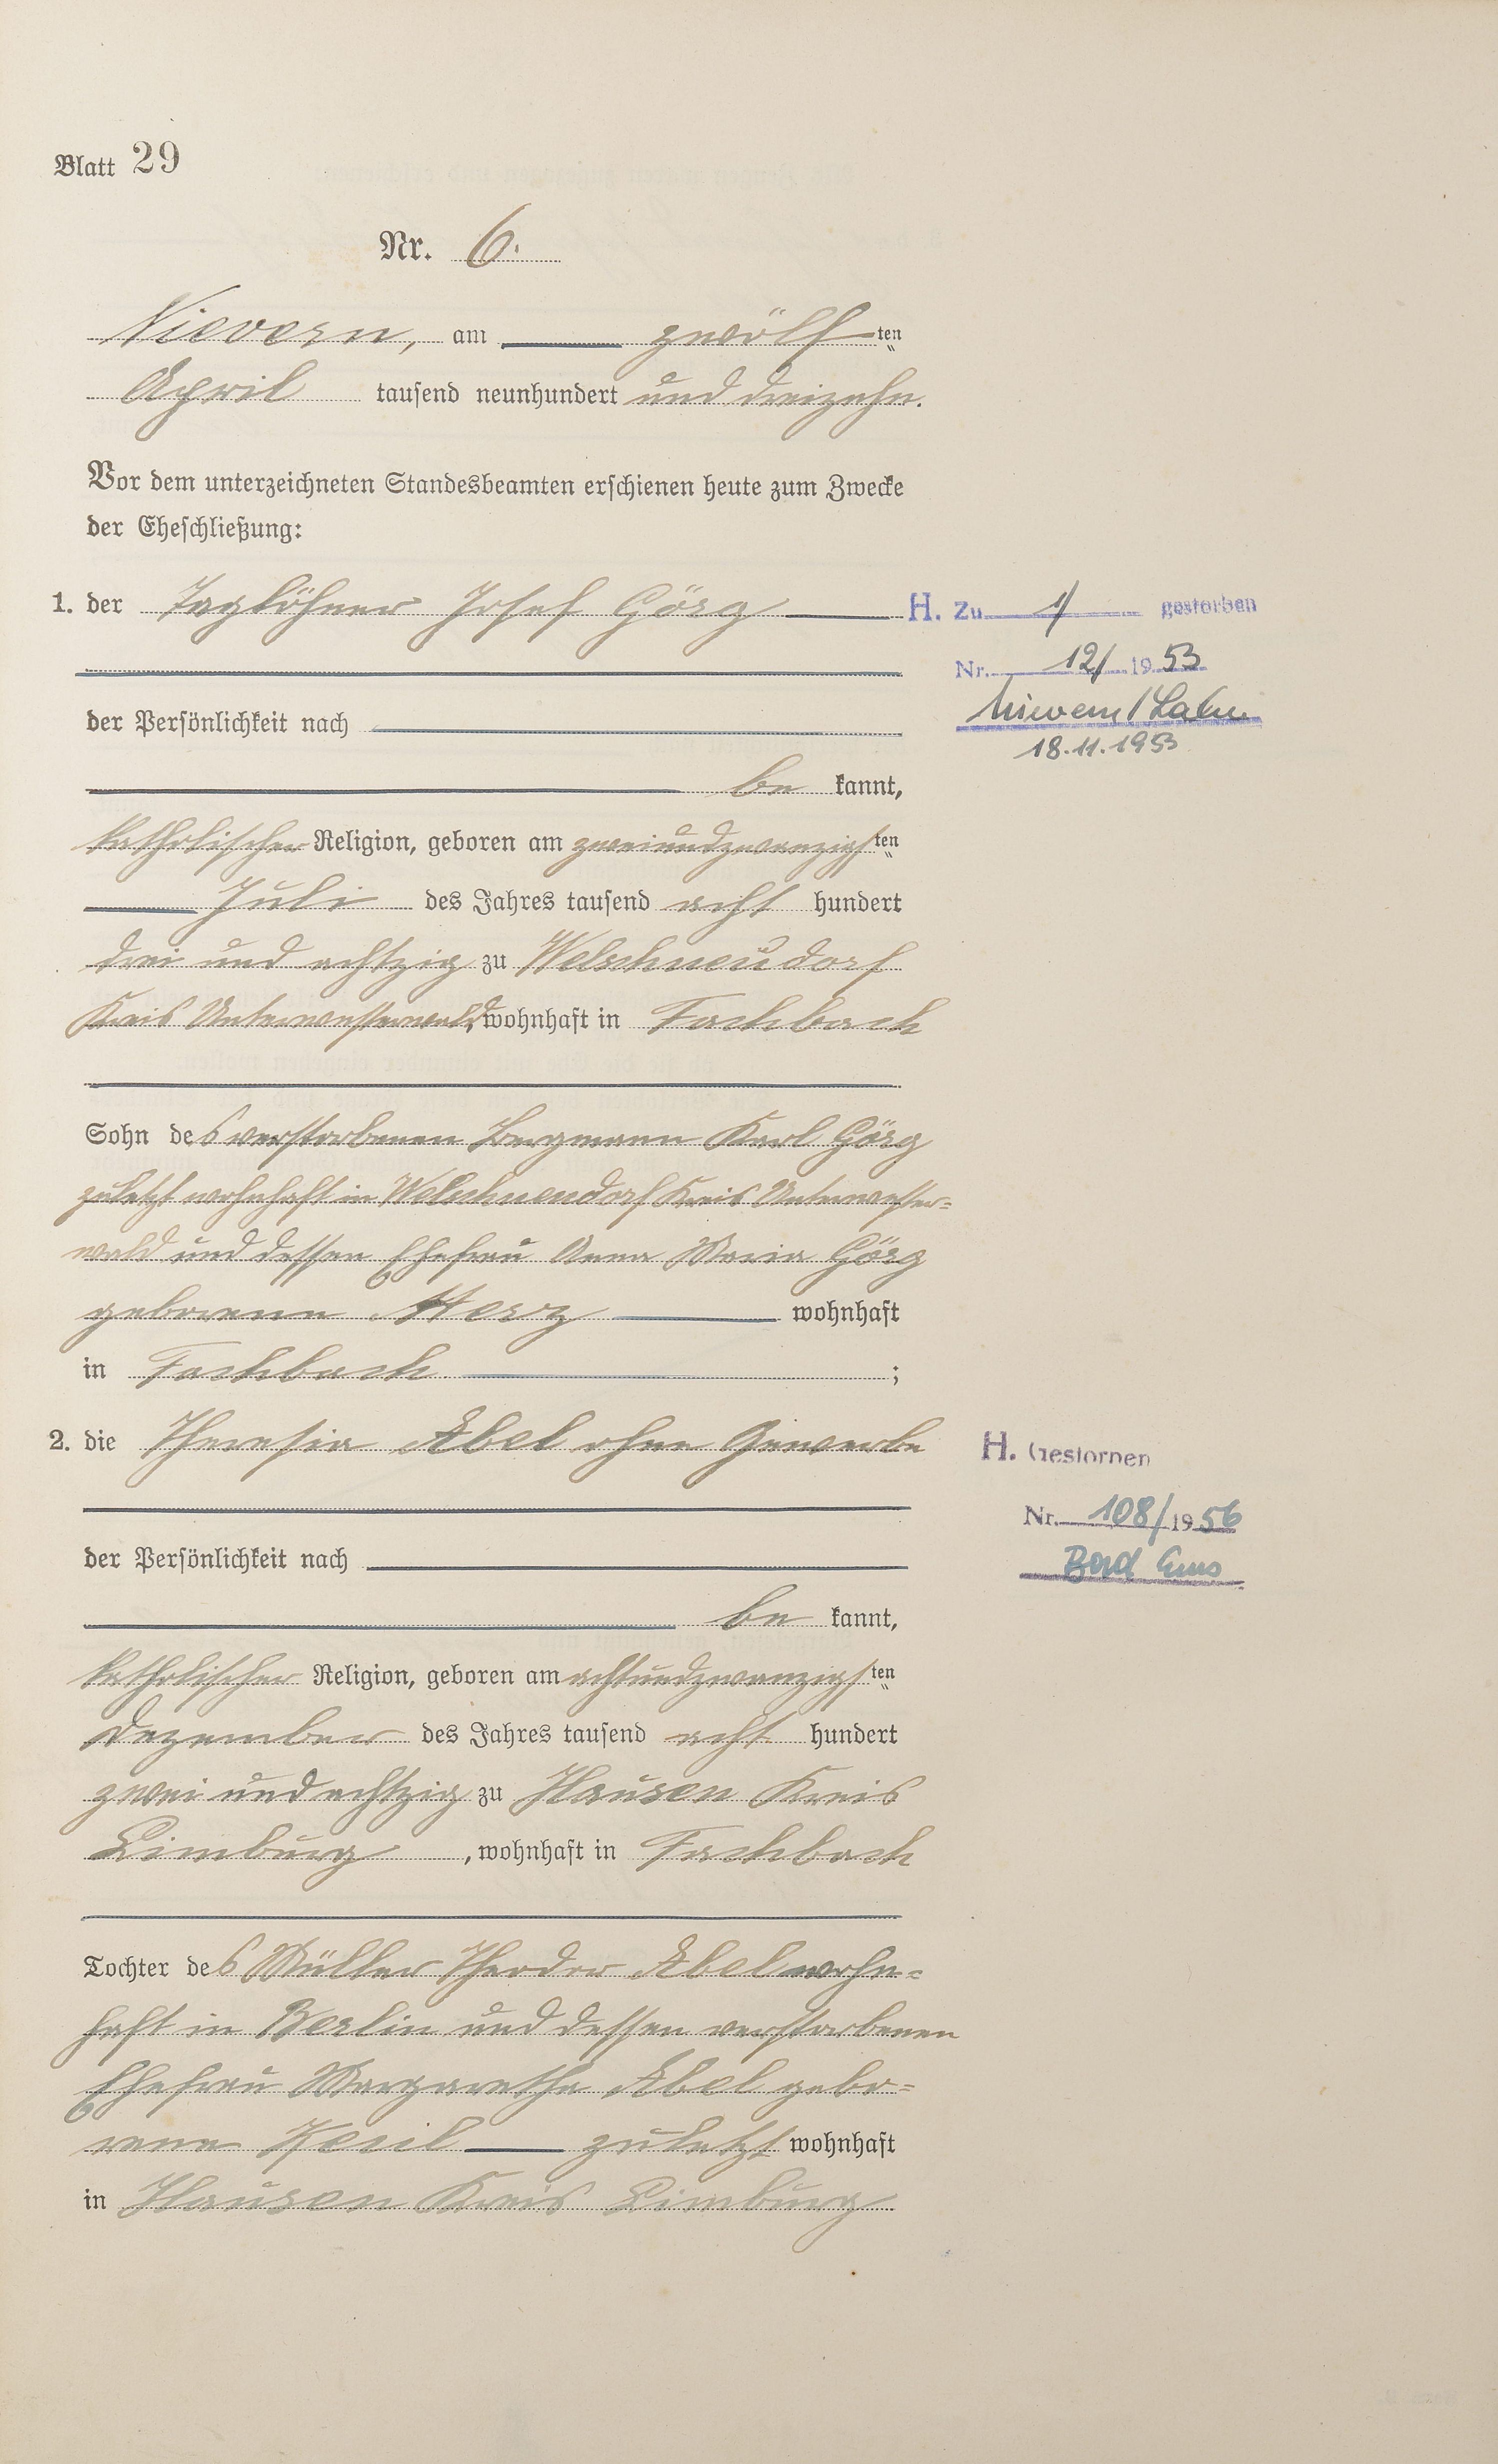 Blatt 29
Nr. 6.
Nievern, am zwölften
April tausend neunhundert und dreizehn.
Vor dem unterzeichneten Standesbeamten erschienen heute zum Zwecke
der Eheschließung:
1. der Taglöhner Josef Görg
H. Zu 1/ gestorben
Nr. 12/1953
Nievern/Lahn
18.11.1953
der Persönlichkeit nach
be kannt,
katholischer Religion, geboren am zweiundzwanzigsten
Juli des Jahres tausend acht hundert
drei und achtzig zu Welschneudorf
Kreis Unterwesterwald, wohnhaft in Fachbach
Sohn des verstorbenen Bergmann Karl Görg
zuletzt wohnhaft in Welschneudorf Kreis Unterwester=
wald und dessen Ehefrau Anna Maria Görg
geborene Herz wohnhaft
in Fachbach ;
2. die Theresia Abel ohne Gewerbe
H. Gestorben
Nr. 108/1956
Bad Ems
der Persönlichkeit nach
be kannt,
katholischer Religion, geboren am achtundzwanzigsten
Dezember des Jahres tausend acht hundert
zwei und achtzig zu Hausen Kreis
Limburg, wohnhaft in Fachbach
Tochter des Müller Theodor Abel wohn=
haft in Berlin und dessen verstorbenen
Ehefrau Margarethe Abel gebo=
rene zuletzt wohnhaft
in Hausen Kreis Limburg